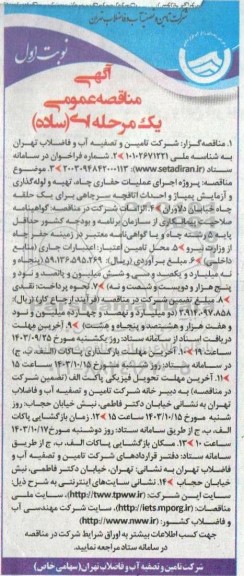 شرکت تامین و تصفیه آب و فاضلاب تهران
نوبت اول
آگهی
مناقصه عمومی
یک مرحله ای (ساده)
۱. مناقصه گزار: شرکت تامین و تصفیه آب و فاضلاب تهران
به شناسه ملی ۱۰۱۰۲۶۷۱۲۲۱ ۲. شماره فراخوان در سامانه
ستاد (www.setadiran.ir): ۲۰۰۳۰۹۴۸۴۲۰۰۰۱۱۳ ۳. موضوع
مناقصه: پروژه اجرای عملیات حفاری چاه، تهیه و لوله گذاری
و آزمایش پمپاژ و احداث اتاقچه سرچاهی برای یک حلقه
چاه خیابان دلاوران ۴. الزامات شرکت در مناقصه: گواهینامه
صلاحیت پیمانکاری از سازمان برنامه و بودجه کشور حداقل
پایه ۵ رشته چاه و یا گواهی نامه معتبر در زمینه حفر چاه
از وزارت نیرو ۵. محل تامین اعتبار: اعتبارات جاری (منابع
داخلی) ۶. مبلغ برآوردی (ریال): ۵۹.۱۳۶.۵۹۵.۲۶۹ (پنجاه و
نه میلیارد و یکصد و سی و شش میلیون و پانصد و نود و
پنج هزار و دویست و شصت و نه) ۷. نحوه پرداخت: نقدی
۸. مبلغ تضمین شرکت در مناقصه (فرآیند ارجاع کار) (ریال):
۲.۹۱۴.۰۹۷.۸۵۸ (دو میلیارد و نهصد و چهارده میلیون و نود
و هفت هزار و هشتصد و پنجاه و هشت) ۹. آخرین مهلت
دریافت اسناد از سامانه ستاد: روز یکشنبه مورخ ۱۴۰۳/۰۹/۲۵
ساعت ۱۹ ۱۰. آخرین مهلت بارگذاری پاکات (الف، ب، ج)
در سامانه ستاد: روز شنبه مورخ ۱۴۰۳/۱۰/۱۵ ساعت ۱۵
۱۱. آخرین مهلت تحویل فیزیکی پاکت الف (تضمین شرکت
در مناقصه) به دبیرخانه شرکت تامین و تصفیه آب و فاضلاب
تهران به نشانی خیابان دکتر فاطمی، نبش خیابان حجاب: روز
شنبه مورخ ۱۴۰۳/۱۰/۱۵ ساعت ۱۵ ۱۲. زمان بازگشایی پاکات
الف، ب، ج از طریق سامانه ستاد: روز دوشنبه مورخ ۱۴۰۳/۱۰/۱۷
ساعت ۱۰ ۱۳. مکان بازگشایی پاکات الف، ب، ج از طریق
سامانه ستاد: دفتر قراردادهای شرکت تامین و تصفیه آب و
فاضلاب تهران به نشانی: تهران، خیابان دکتر فاطمی، نبش
خیابان حجاب ۱۴. نشانی سایت های اینترنتی به شرح ذیل
سایت این شرکت: (http://tww.tpww.ir)، سایت ملی
مناقصات: (http://iets.mporg.ir)، سایت شرکت مهندسی آب
و فاضلاب کشور: (http://www.nww.ir)
جهت کسب اطلاعات بیشتر به اوراق شرایط شرکت در مناقصه
در سامانه ستاد مراجعه نمایید.
شرکت تامین و تصفیه آب و فاضلاب تهران (سهامی خاص)